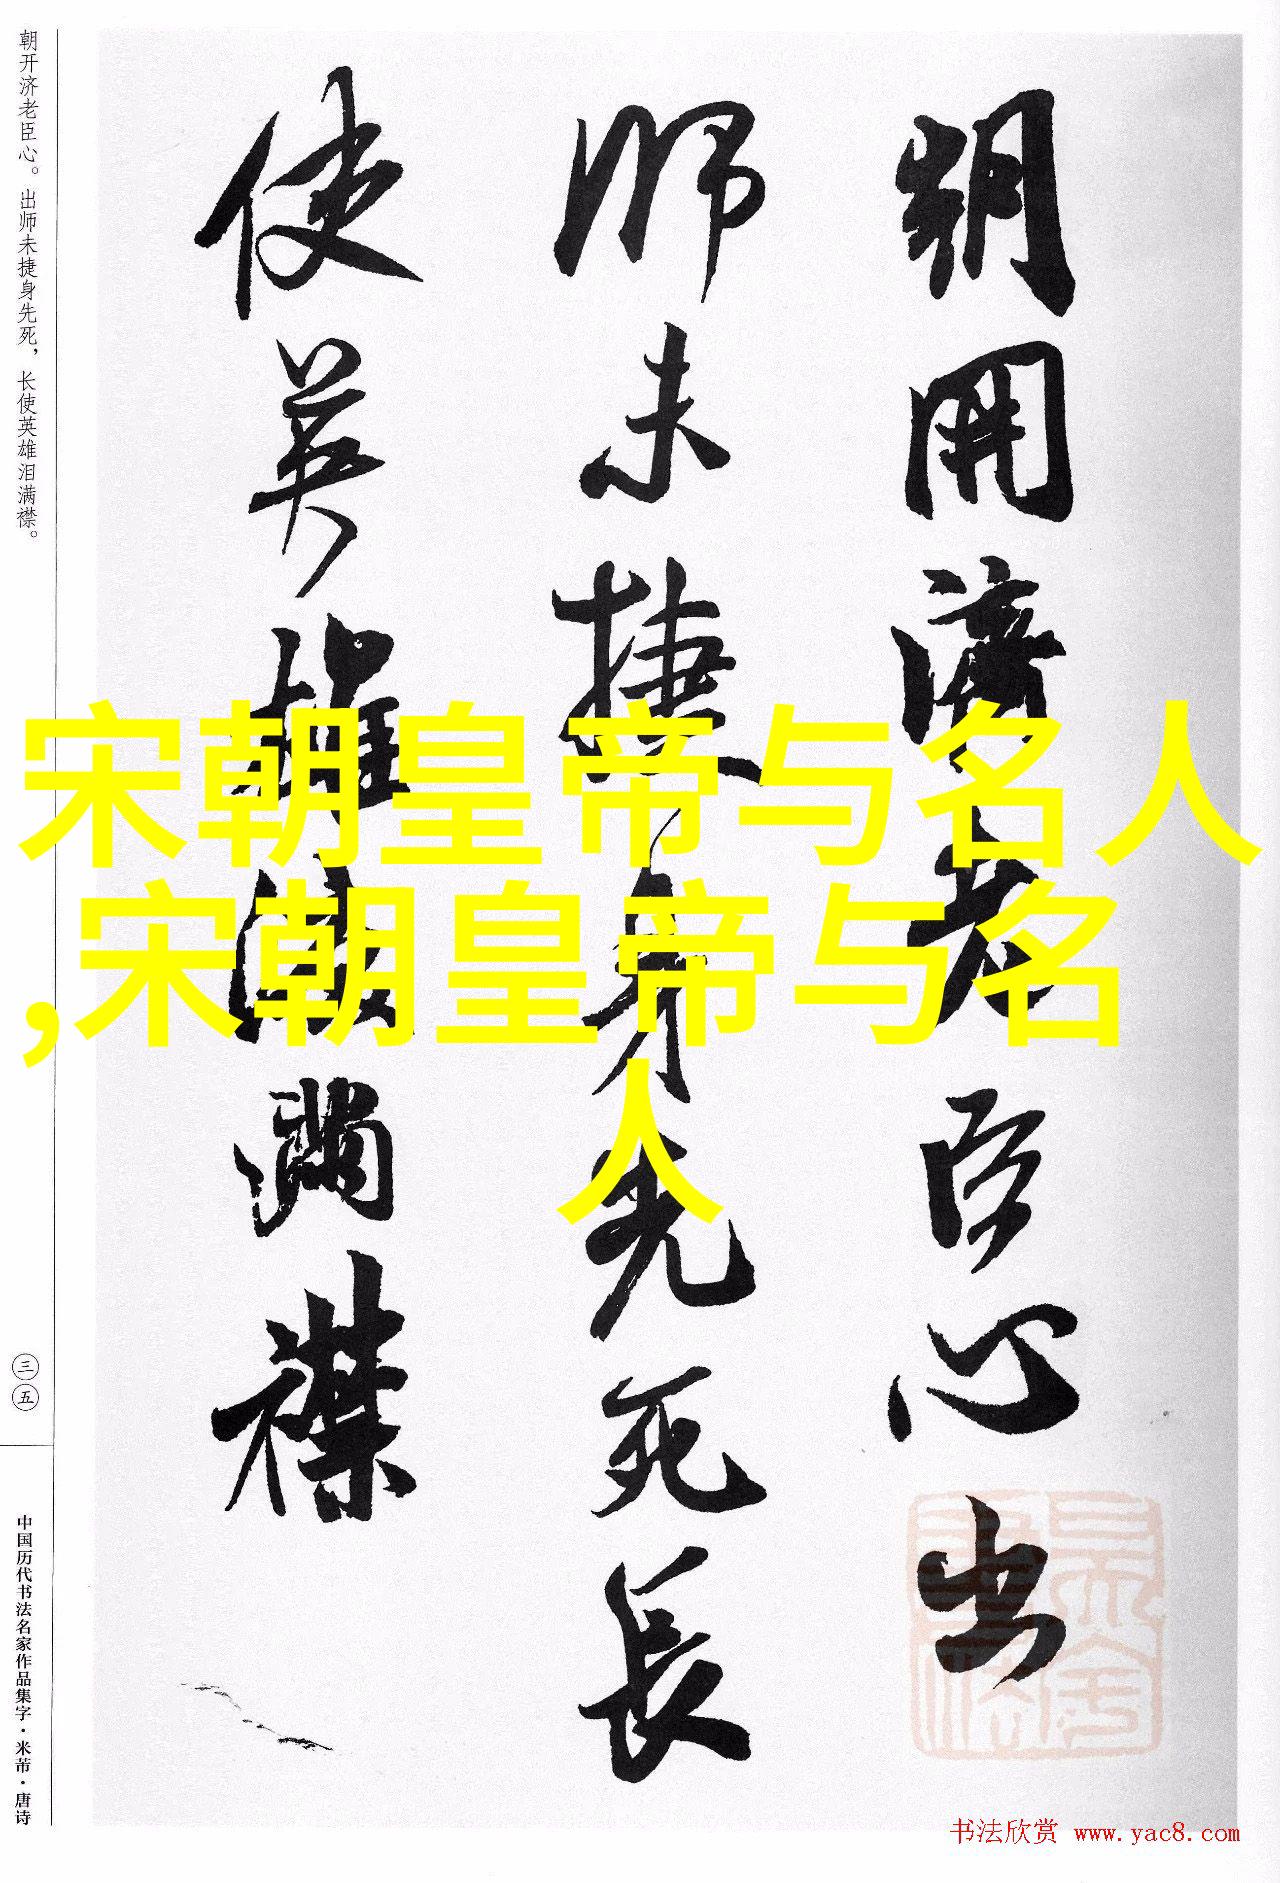 朝開濟老臣心出
師未捷身先死長
使英雄淚滿襟
宋朝皇帝与名人
,宋朝皇帝与名
人
朝开济老臣心。出师未捷身先死，长使英雄泪满襟。
三五
中国历代书法名家作品集字·米芾·唐诗
书法欣赏 www.yac8.com